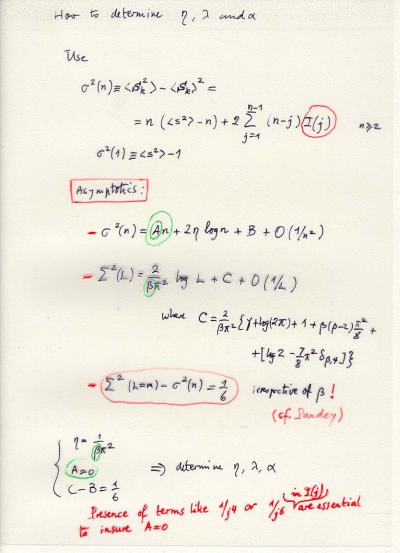 How to determine η, λ and α
Use
σ²(n) ≡ <S²ₖ> - <Sₖ>² =
= n (<s²> - n) + 2 Σ_{j=1}^{n-1} (n-j) I(j)   n≥2
σ²(1) ≡ <s²> - 1
Asymptotics:
- σ²(n) = An + 2η log n + B + O(1/n²)
- Σ²(L) = 2/βπ² log L + C + O(1/L)
where C = 2/βπ² {γ + log(2π) + 1 + β(β-2) π²/8 +
+ [log 2 - π²/8 δ_{β,4}]}
- Σ²(L=n) - σ²(n) = 1/6   irrespective of β !
(cf. Pandey)
η = 1/βπ²
A=0   ⇒ determine η, λ, α
C-B = 1/6
Presence of terms like 1/j⁴ or 1/j⁶ in I(j) are essential
to insure A=0